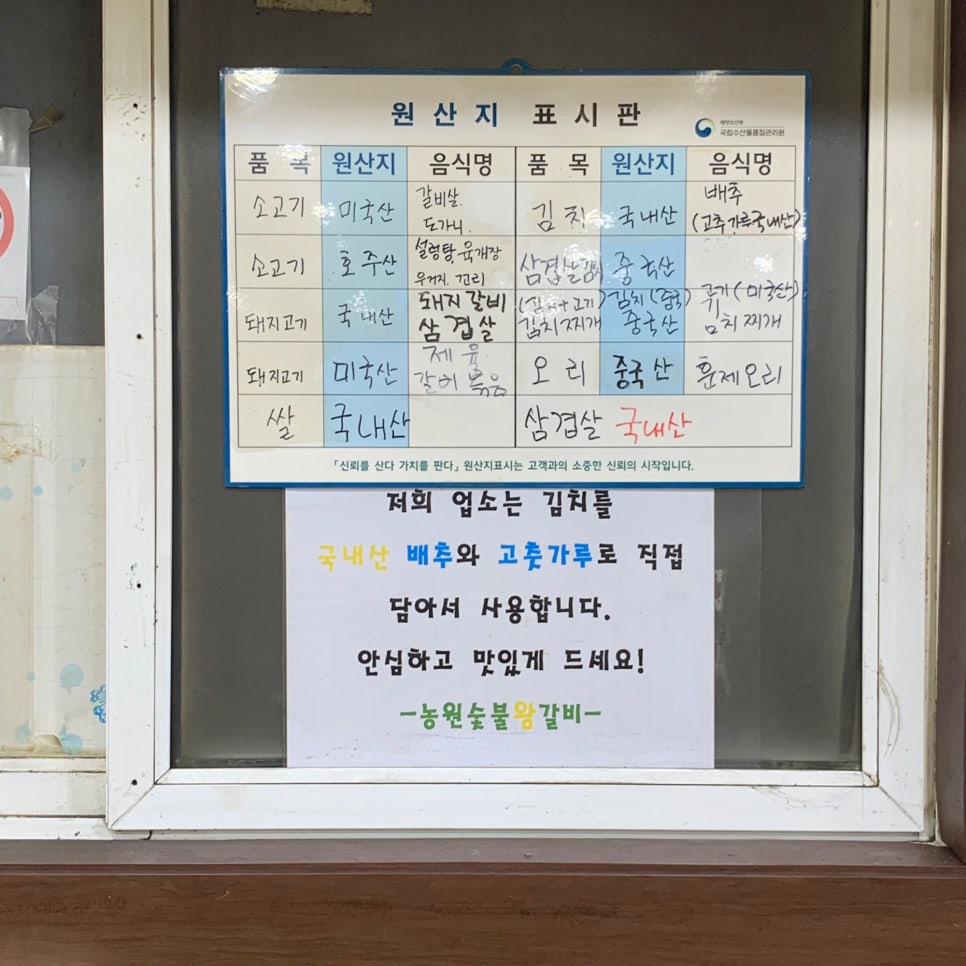 원산지 표시판
해양수산부
국립수산물품질관리원
품 목 원산지 음식명 품 목 원산지 음식명
소고기 미국산 갈비살 도가니 김치 국내산 배추 (고추가루국내산)
소고기 호주산 설렁탕, 육개장 우거지 꼬리 삼겹살 중국산
돼지고기 국내산 돼지갈비 삼겹살 김치찌개 김치(중국) 중국산 고기(미국산) 김치찌개
돼지고기 미국산 제육 갈비 볶음 오리 중국산 훈제오리
쌀 국내산 삼겹살 국내산
「신뢰를 산다 가치를 판다」 원산지표시는 고객과의 소중한 신뢰의 시작입니다.
저희 업소는 김치를
국내산 배추와 고춧가루로 직접
담아서 사용합니다.
안심하고 맛있게 드세요!
-농원숯불왕갈비-